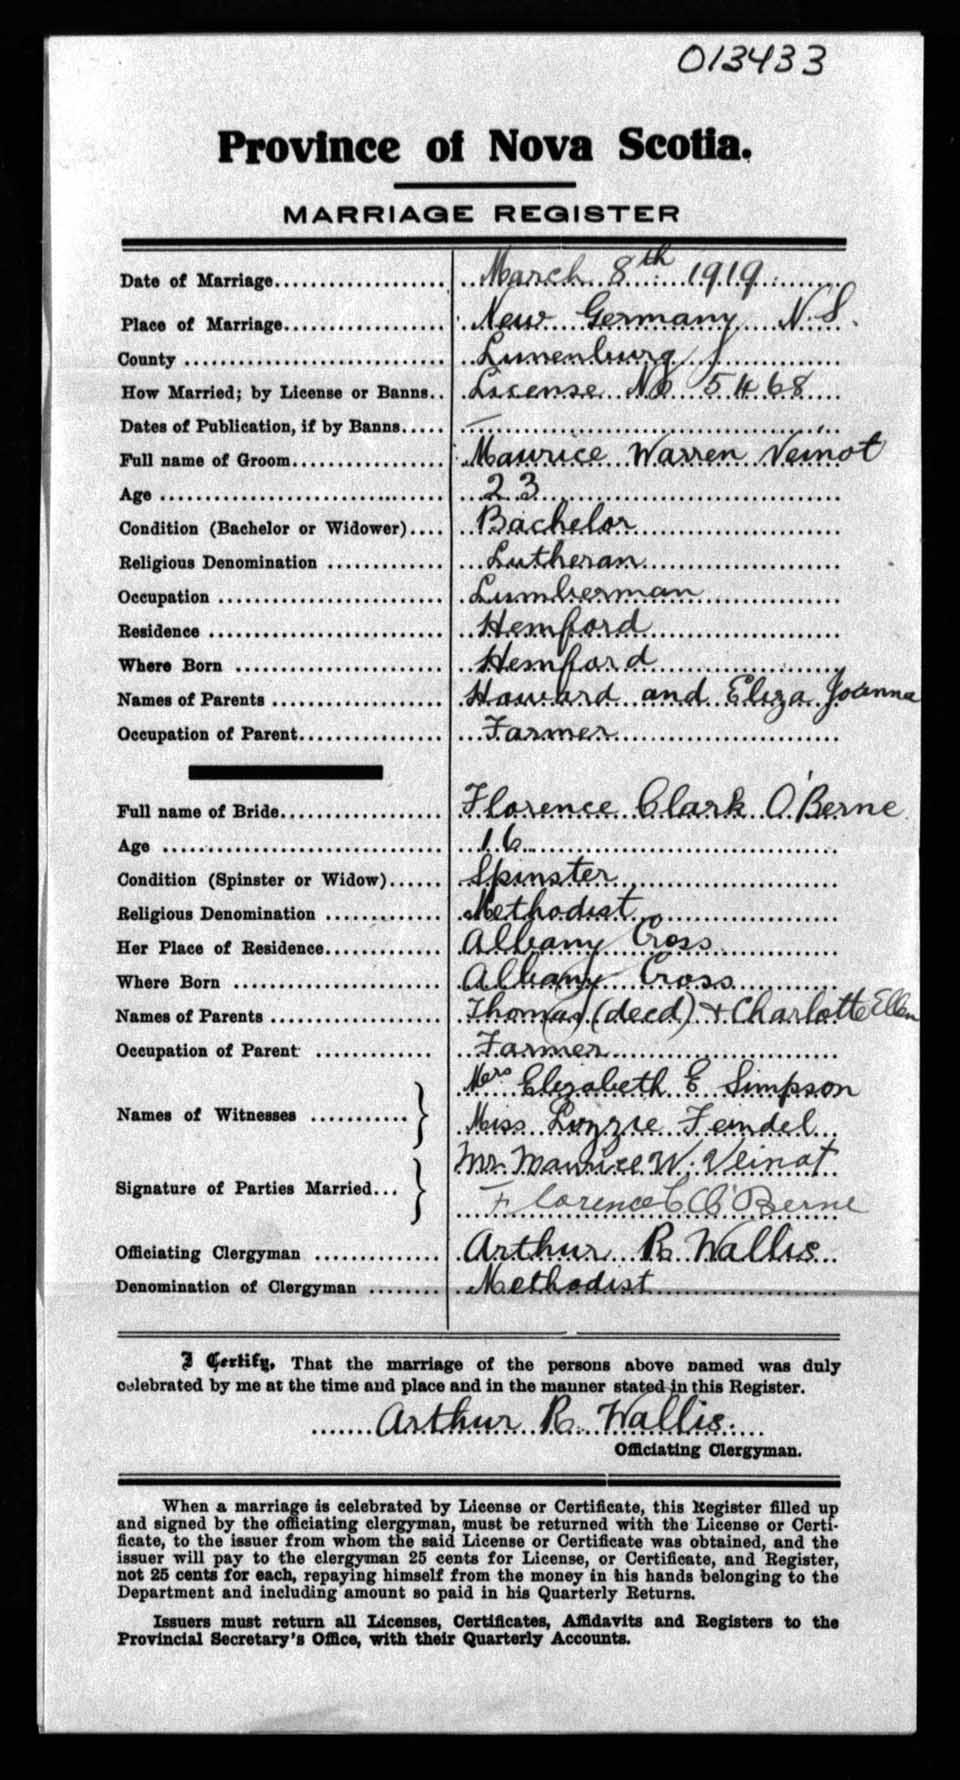 013433
Province of Nova Scotia.
MARRIAGE REGISTER
Date of Marriage.................... March 8th 1919
Place of Marriage.................. New Germany N.S.
County ............................. Lunenburg
How Married; by License or Banns.. License No 5468
Dates of Publication, if by Banns..... —
Full name of Groom.................. Maurice Warren Veinot
Age ................................ 23
Condition (Bachelor or Widower).... Bachelor
Religious Denomination ............. Lutheran
Occupation ......................... Lumberman
Residence .......................... Hemford
Where Born ........................ Hemford
Names of Parents ................... Howard and Eliza Joanna
Occupation of Parent................ Farmer
Full name of Bride.................. Florence Clark O'Berne
Age ................................ 16
Condition (Spinster or Widow)...... Spinster
Religious Denomination ............. Methodist
Her Place of Residence............. Albany Cross
Where Born ........................ Albany Cross
Names of Parents ................... Thomas (decd) + Charlotte Ellen
Occupation of Parent ............. Farmer
Mrs Elizabeth E Simpson
Names of Witnesses ...........
Miss Lizzie Feindel
Mr. Maurice W. Veinot
Signature of Parties Married...
Florence C O'Berne
Officiating Clergyman .............. Arthur R. Wallis
Denomination of Clergyman ........ Methodist
I Certify, That the marriage of the persons above named was duly
celebrated by me at the time and place and in the manner stated in this Register.
Arthur R. Wallis.
Officiating Clergyman.
When a marriage is celebrated by License or Certificate, this Register filled up
and signed by the officiating clergyman, must be returned with the License or Certi-
ficate, to the issuer from whom the said License or Certificate was obtained, and the
issuer will pay to the clergyman 25 cents for License, or Certificate, and Register,
not 25 cents for each, repaying himself from the money in his hands belonging to the
Department and including amount so paid in his Quarterly Returns.
Issuers must return all Licenses, Certificates, Affidavits and Registers to the
Provincial Secretary's Office, with their Quarterly Accounts.